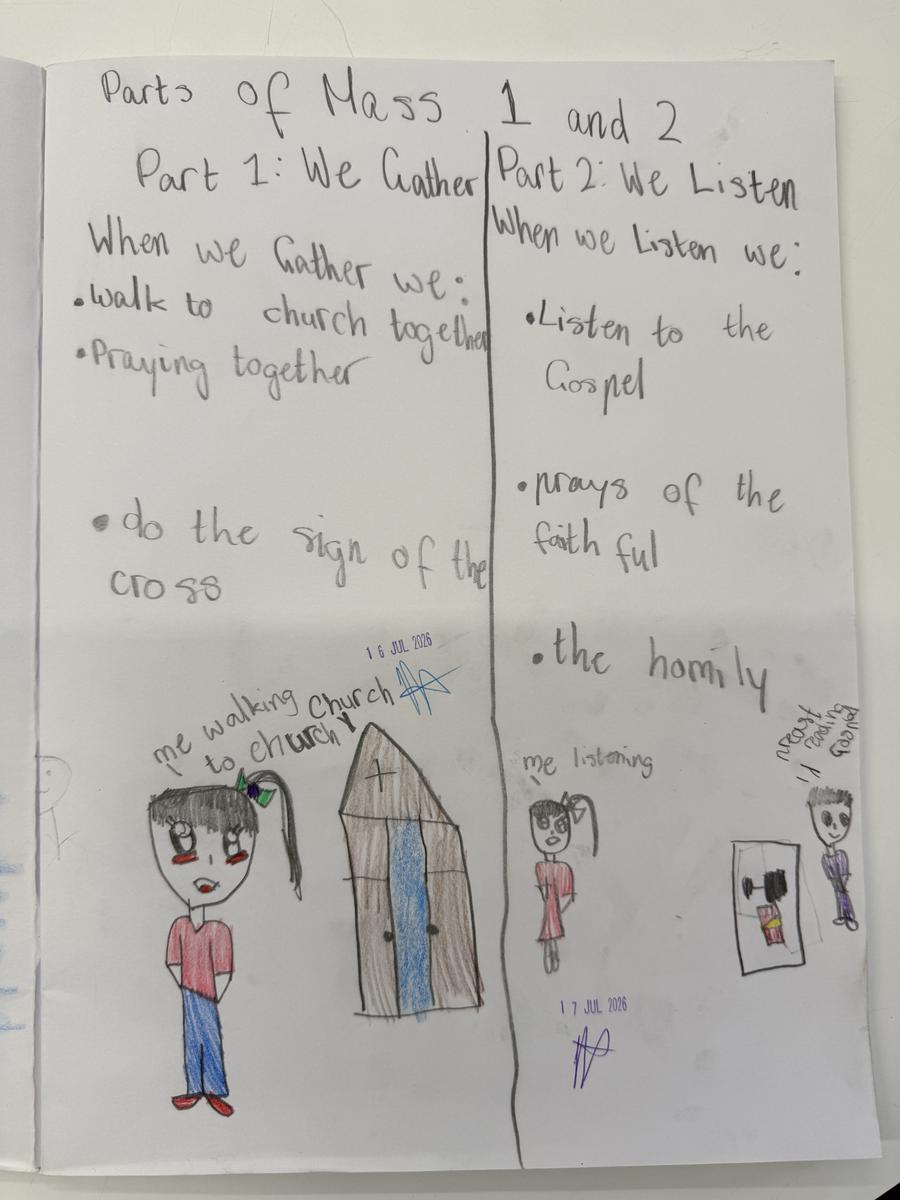 Parts of Mass 1 and 2
Part 1: We Gather
When we Gather we:
•walk to church together
•Praying together
•do the sign of the
cross
16 JUL 2026
me walking
to church
church
Part 2: We Listen
When we Listen we:
•Listen to the
Gospel
•prays of the
faith ful
•the homily
me listening
reading
17 JUL 2026